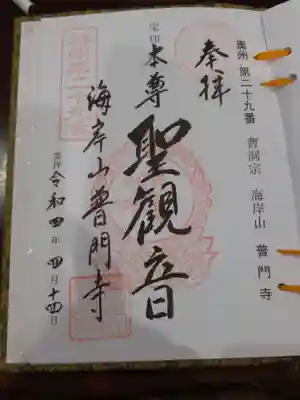 奥州・第二十九番
曹洞宗 海岸山 普門寺
奉拝
本尊
聖観音
海岸山普門寺
令和四年四月十四日